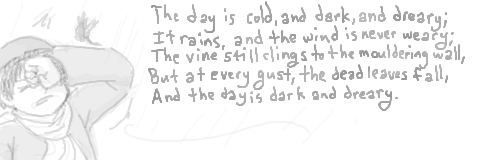 The day is cold, and dark, and dreary;
It rains, and the wind is never weary;
The vine still clings to the mouldering wall,
But at every gust, the dead leaves fall,
And the day is dark and dreary.